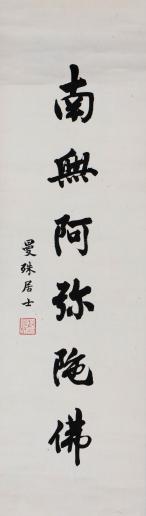 南無阿弥陀佛
曼殊居士